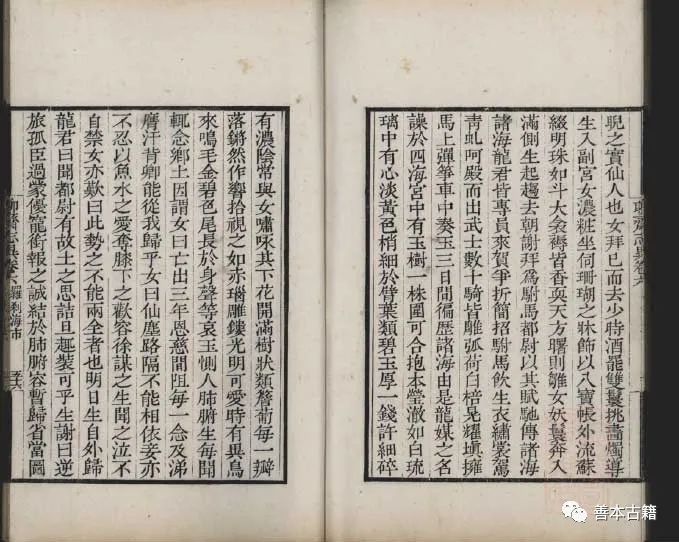 聊齋志異卷六
睨之實仙人也女拜已而去少時酒罷雙鬟挑畵燭導
生入副宮女濃粧坐伺珊瑚之牀飾以八寶帳外流蘇
綴明珠如斗大衾褥皆香耎天方曙則雛女妖鬟奔入
滿側生起趨去朝謝拜爲駙馬都尉以其賦馳傳諸海
諸海龍君皆專員來賀爭折簡招駙馬飮生衣繡裳駕
靑虬呵殿而出武士數十騎皆雕弧荷白棓晃耀塡擁
馬上彈箏車中奏玉三日間徧歷諸海由是龍媒之名
譟於四海宮中有玉樹一株圍可合抱本瑩澈如白琉
璃中有心淡黃色梢細於臂葉類碧玉厚一錢許細碎
有濃陰常與女嘯咏其下花開滿樹狀類薝蔔每一瓣
落鏘然作響拾視之如赤瑙雕鏤光明可愛時有異鳥
來鳴毛金碧色尾長於身聲等哀玉惻人肺腑生每聞
輒念鄉土因謂女曰亡出三年恩慈間阻每一念及涕
膺汗背卿能從我歸乎女曰仙塵路隔不能相依妾亦
不忍以魚水之愛奪膝下之歡容徐謀之生聞之泣不
自禁女亦歎曰此勢之不能兩全者也明日生自外歸
龍君曰聞都尉有故土之思詰旦趣裝可乎生謝曰逆
旅孤臣過蒙優寵銜報之誠結於肺腑容暫歸省當圖
聊齋志異卷六 羅刹海市
善本古籍